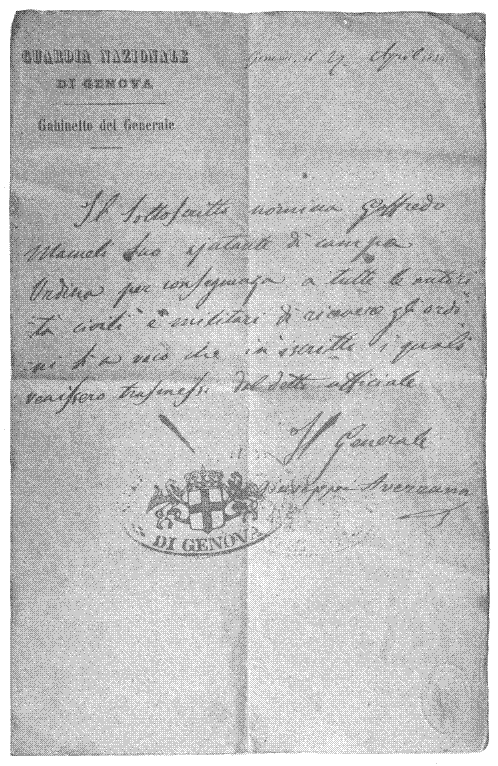 GUARDIA NAZIONALE
DI GENOVA
Gabinetto del Generale
Genova, il 29 Aprile
Il Sottoscritto nomina Goffredo
Mameli suo ajutante di campo
Ordina per conseguenza a tutte le autori
tà civili e militari di ricevere gli ordi
ni sì a voce che in iscritto i quali
venissero trasmessi dal detto officiale
Il Generale
Giuseppe Avezzana
DI GENOVA